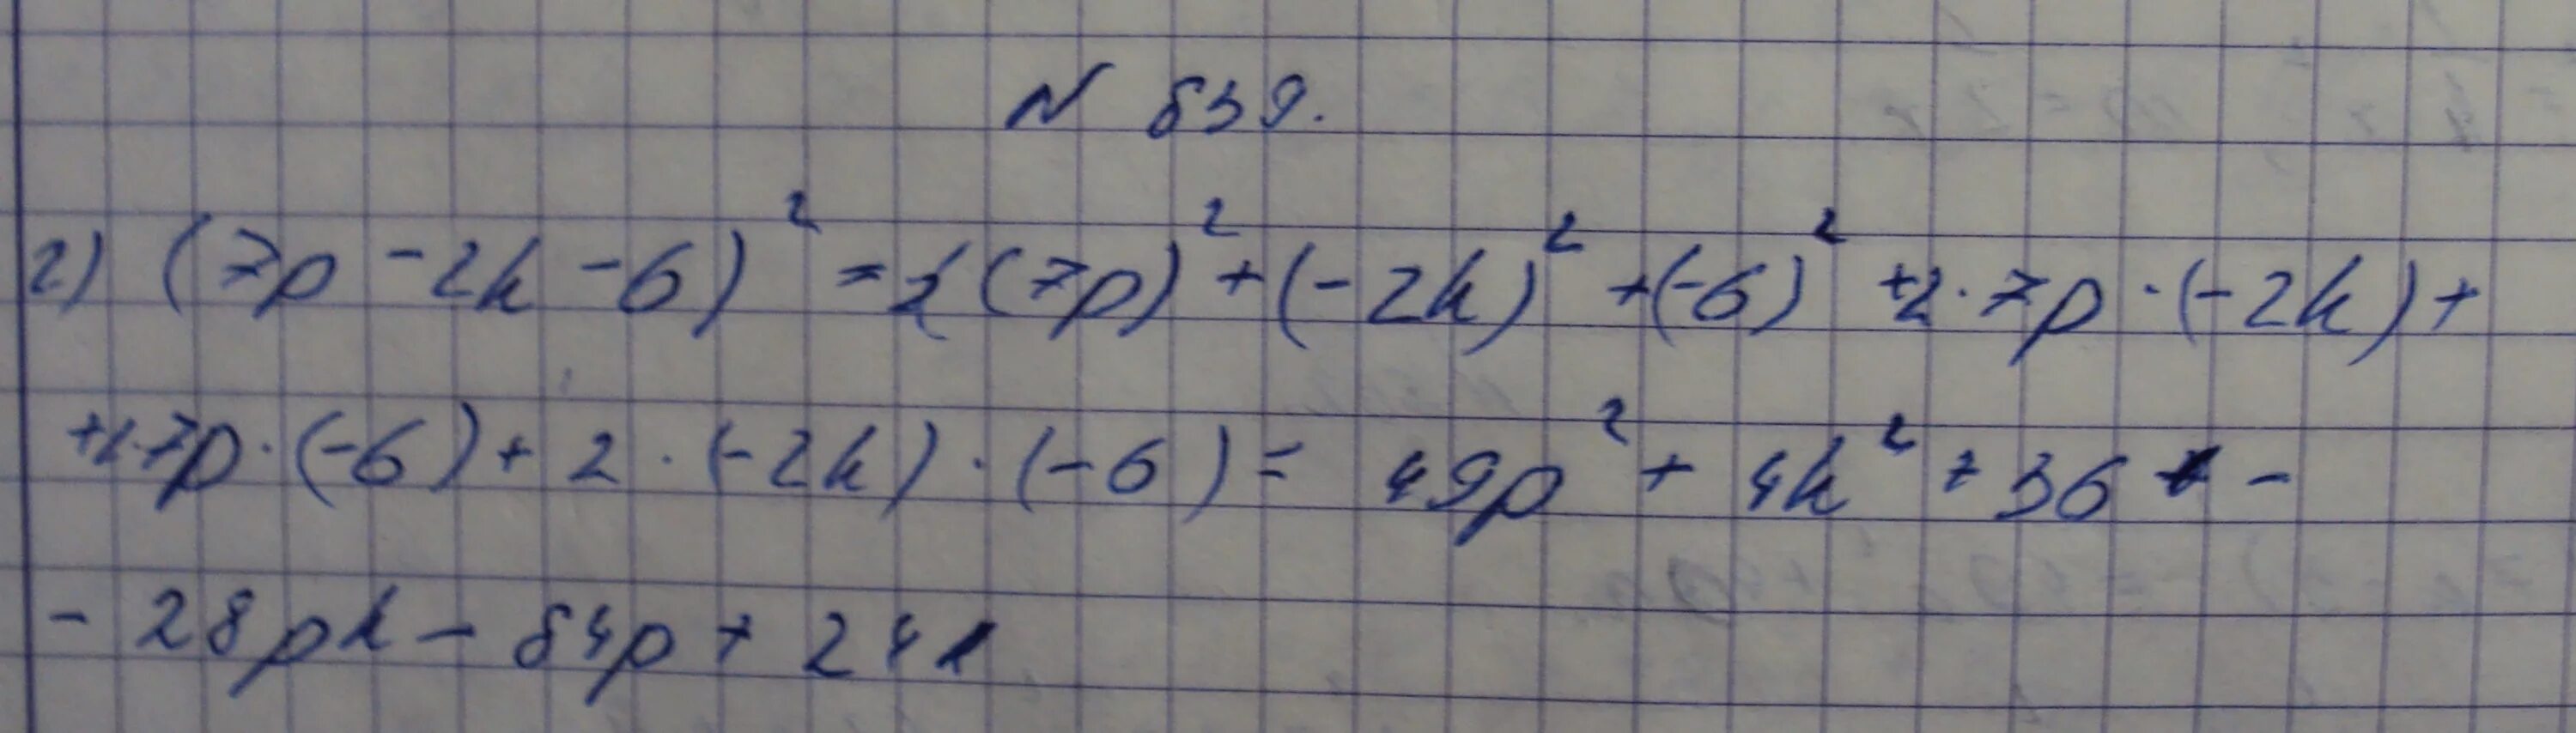 № 839.
2) (7p - 2k - 6)² = (7p)² + (-2k)² + (-6)² + 2 · 7p · (-2k) +
+ 2 · 7p · (-6) + 2 · (-2k) · (-6) = 49p² + 4k² + 36 -
- 28pk - 84p + 24